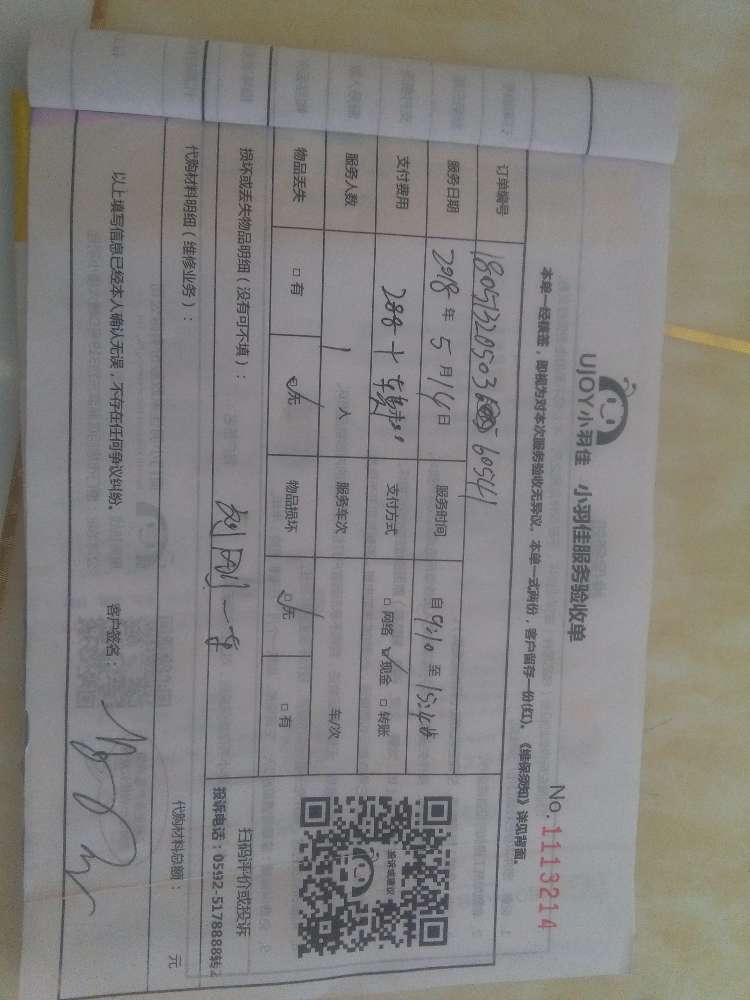 UJOY小羽佳 小羽佳服务验收单
No.1113214
本单一经横签，即视为对本次服务验收无异议。本单一式两份，客户留存一份(红)。《维保须知》详见背面。
订单编号
服务日期 2018 年 5 月 14 日 服务时间 自 9:10 至
支付费用 288 + 支付方式 □ 网络 ☑ 现金 □ 转账
服务人数 1 人 服务车次 车/次
物品丢失 □ 有 ☑ 无 物品损坏 ☑ 无 □ 有
追评或建议
扫码评价或投诉
损坏或丢失物品明细（没有可不填）：
投诉电话：0592-5178888转2
代购材料明细（维修业务）： 代购材料总额： 元
以上填写信息已经本人确认无误，不存在任何争议纠纷。 客户签名：